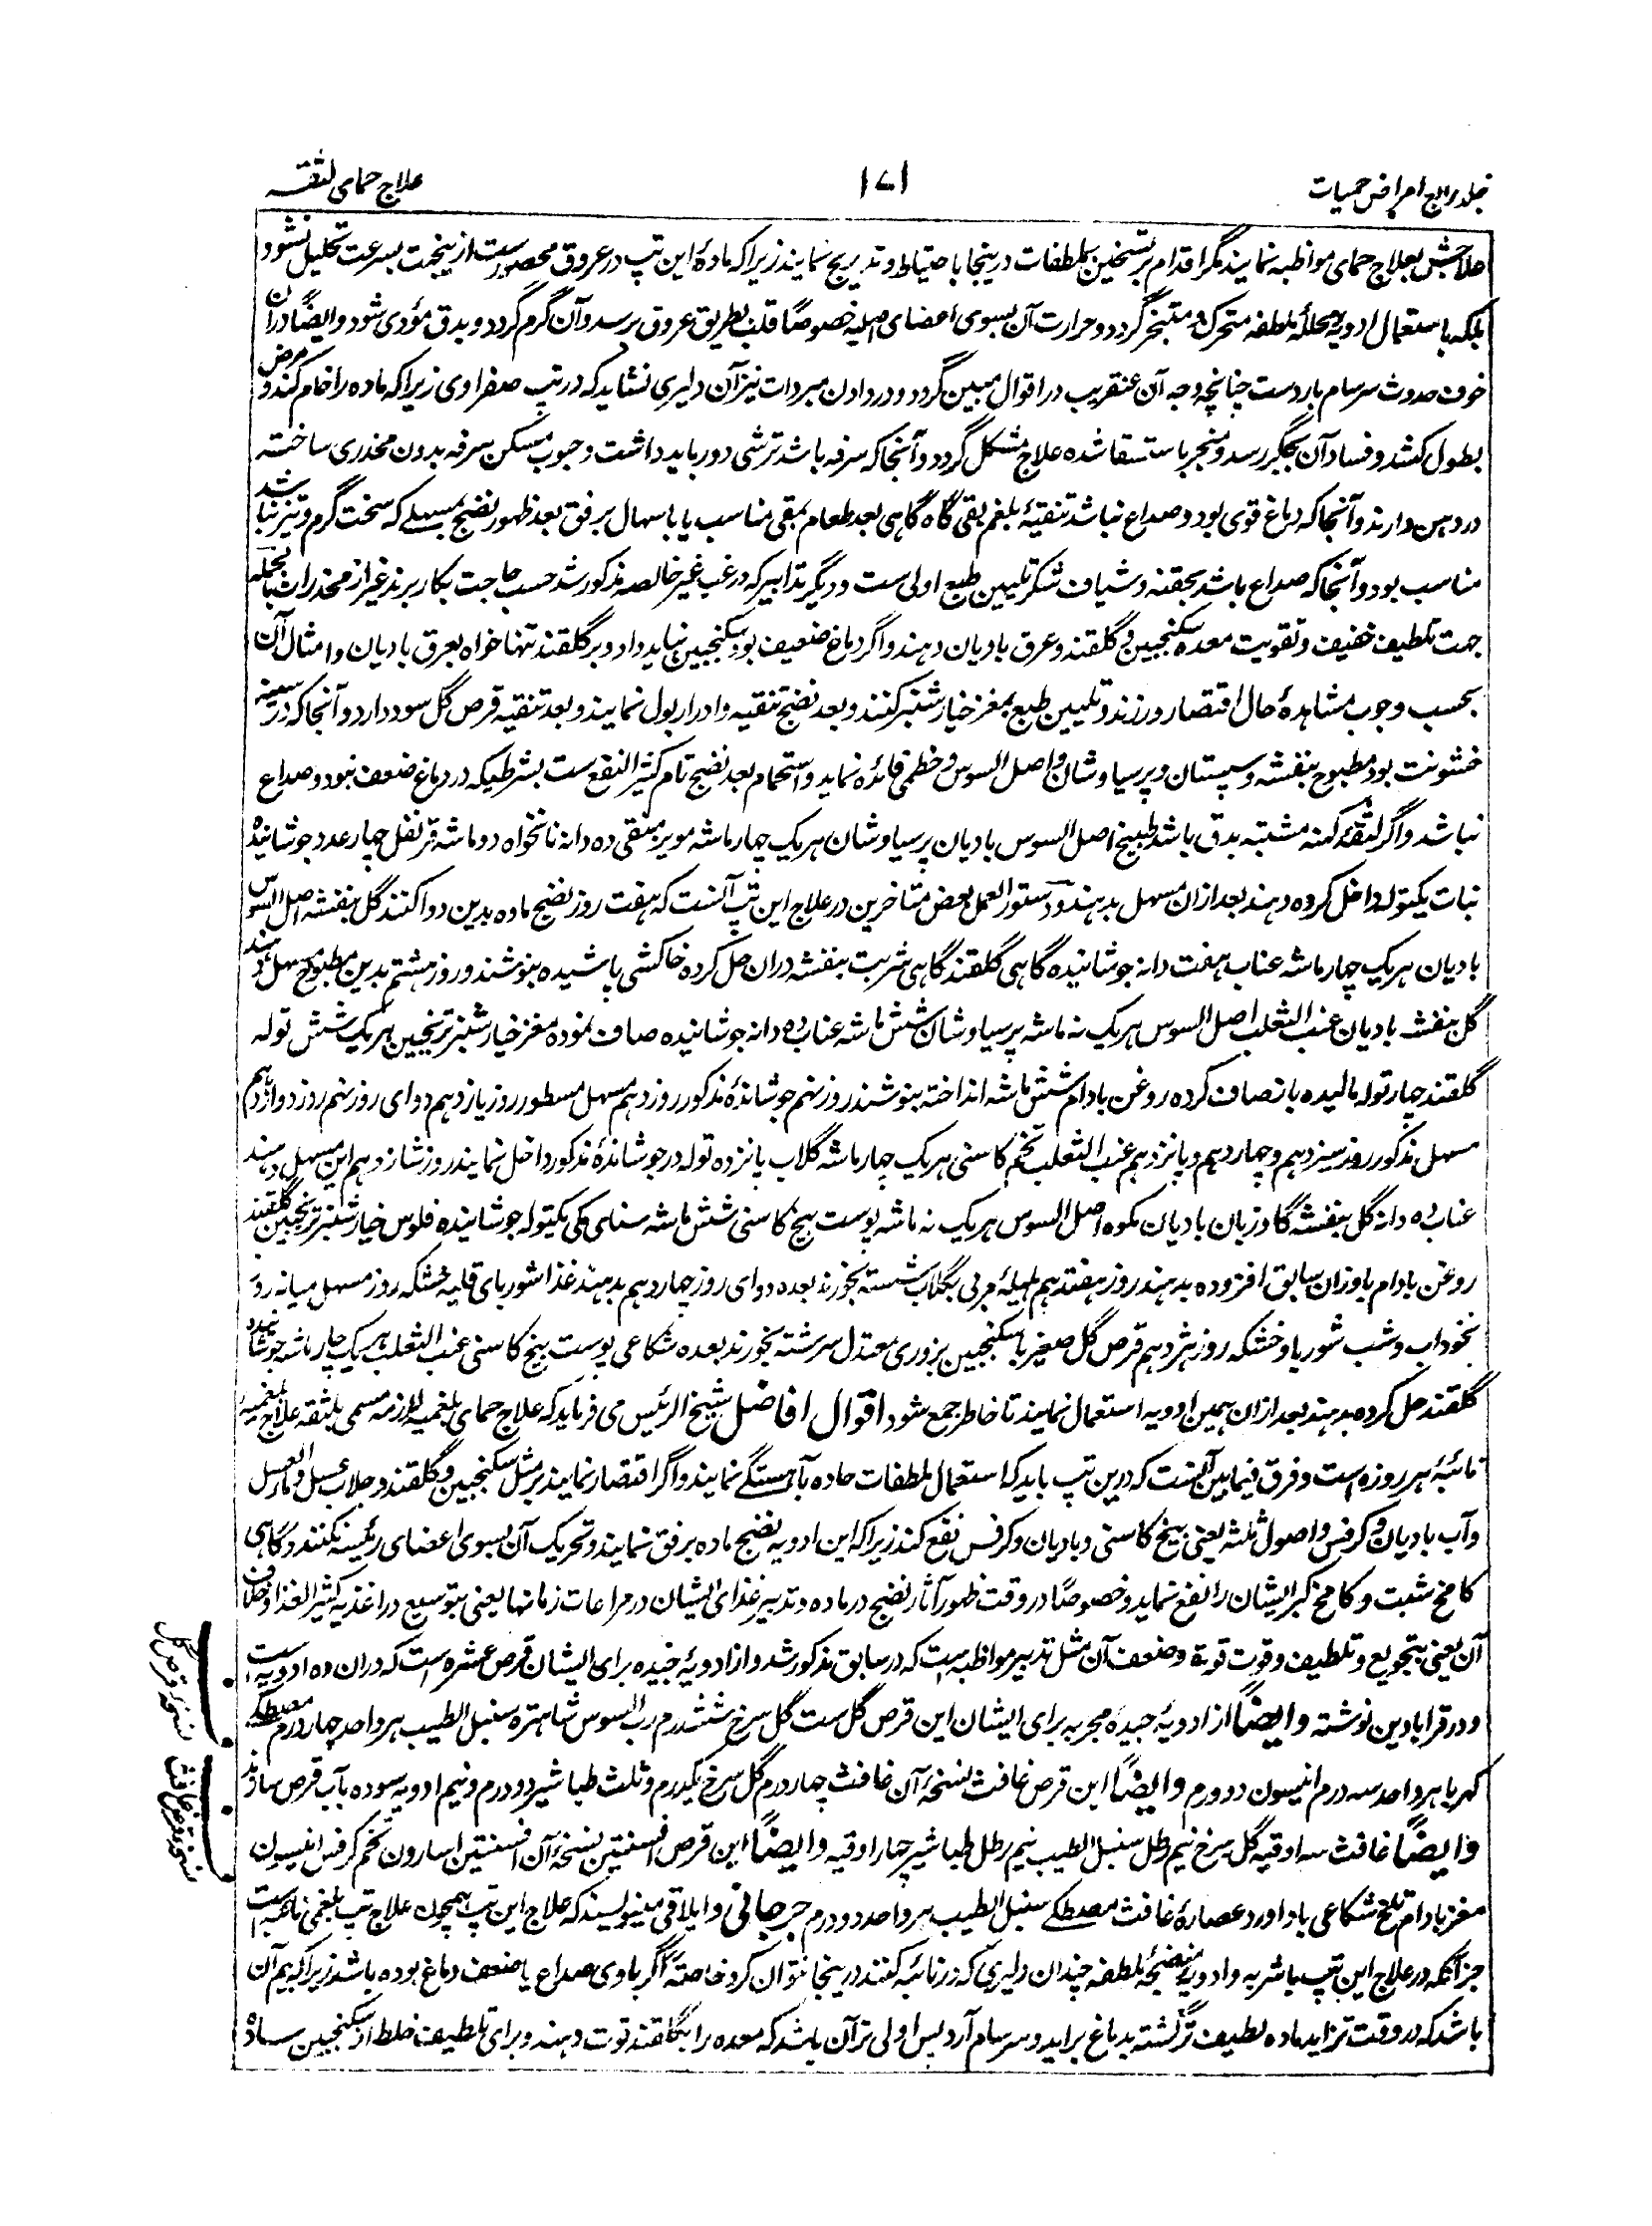 جلد رابع امراض حمیات
۱۷۱
علاج حمای لثقه
علاجش بعلاج حمای مواظبه نمایند مگر اقدام بر تسخین بملطفات درینجا باحتیاط و تدریج نمایند زیرا که مادهٔ این تپ در عروق محصورست ازینجهت بسرعت تحلیل نشود
بلکه باستعمال ادویهٔ محللهٔ ملطفه متحرک و متبخر گردد و حرارت آن بسوی اعضای اصلیه خصوصاً قلب بطریق عروق برسد و آن گرم گردد و بدق مؤدی شود و ایضاً دران
خوف حدوث سرسام باردست چنانچه وجه آن عنقریب در اقوال مبین گردد و در دادن مبردات نیز آن دلیری نشاید که در تپ صفراوی زیرا که ماده را خام کند و مرض
بطول کشد و فساد آن بجگر رسد و منجر باستسقا شده علاج مشکل گردد و آنجا که سرفه باشد ترشی دور باید داشت و حبوب مسکن سرفه بدون مخدری ساخته
در دهن دارند و آنجا که دماغ قوی بود و صداع نباشد تنقیهٔ بلغم بقی گاه گاهی بعد طعام بمقی مناسب یا باسهال برفق بعد ظهور نضج بمسهلے که سخت گرم و تیز نباشد
مناسب بود و آنجا که صداع باشد بحقنه و شیاف شکر تلیین طبع اولی ست و دیگر تدابیر که در غب غیر خالصه مذکور شد حسب حاجت بکار برند غیر از مخدرات بالجمله
جهت تلطیف خفیف و تقویت معده سکنجبین و گلقند و عرق بادیان دهند و اگر دماغ ضعیف بود سکنجبین نباید داد و بر گلقند تنها خواه بعرق بادیان و امثال آن
بحسب وجوب مشاهدهٔ حال اقتصار ورزند و تلیین طبع بمغز خیارشنبر کنند و بعد نضج تنقیه و ادرار بول نمایند و بعد تنقیه قرص گل سود دارد و آنجا که در سینه
خشونت بود مطبوخ بنفشه و سپستان و پرسیاوشان و اصل السوس و خطمی فائده نماید و استحمام بعد نضج تام کثیر النفع ست بشرطیکه در دماغ ضعف نبود و صداع
نباشد و اگر لثقهٔ کهنه مشتبه بدق باشد طبیخ اصل السوس بادیان پرسیاوشان هر یک چهار ماشه مویز منقی ده دانه نانخواه دو ماشه قرنفل چهار عدد جوشانیده
نبات یکتوله داخل کرده دهند بعد ازان مسهل بدهند و دستور العمل بعض متاخرین در علاج این تپ آنست که هفت روز نضج ماده بدین دوا کنند گل بنفشه اصل السوس
بادیان هر یک چهار ماشه عناب هفت دانه جوشانیده گاهی گلقند گاهی شربت بنفشه دران حل کرده خاکشی پاشیده بنوشند و روز هشتم بدین مطبوخ مسهل دهند
گل بنفشه بادیان عنب الثعلب اصل السوس هر یک نه ماشه پرسیاوشان شش ماشه عناب ده دانه جوشانیده صاف نموده مغز خیارشنبر ترنجبین هر یک شش توله
گلقند چهار توله مالیده باز صاف کرده روغن بادام شش ماشه انداخته بنوشند روز نهم جوشاندهٔ مذکور روز دهم مسهل مسطور روز یازدهم دوای روز نهم روز دوازدهم
مسهل مذکور روز سیزدهم و چهاردهم و پانزدهم عنب الثعلب تخم کاسنی هر یک چهار ماشه گلاب پانزده توله در جوشاندهٔ مذکور داخل نمایند روز شانزدهم این مسهل دهند
عناب ده دانه گل بنفشه گاوزبان بادیان مکوه اصل السوس هر یک نه ماشه پوست بیخ کاسنی شش ماشه سنای مکی یکتوله جوشانیده فلوس خیارشنبر ترنجبین گلقند
روغن بادام باوزان سابق افزوده بدهند روز هفتدهم هلیلهٔ مربی بگلاب شسته بخورند بعده دوای روز چهاردهم بدهند غذا شوربای قلیه خشکه روز مسهل میانه روز
نخوداب و شب شوربا و خشکه روز هژدهم قرص گل صغیر با سکنجبین بزوری معتدل سرشته بخورند بعده شکاعی پوست بیخ کاسنی عنب الثعلب هر یک چار ماشه جوشانیده
گلقند حل کرده بدهند بعد ازان همین ادویه استعمال نمایند تا خاطر جمع شود اقوال افاضل شیخ الرئیس می فرماید که علاج حمای بلغمیه لازمه مسمی بلثقه علاج بلغمیهٔ
نائبهٔ هر روزه است و فرق فیمابین آنست که درین تپ باید که استعمال ملطفات حاده بآهستگے نمایند و اگر اقتصار نمایند بر مثل سکنجبین و گلقند و جلاب عسل و ماء العسل
و آب بادیان و کرفس و اصول ثلثه یعنی بیخ کاسنی و بادیان و کرفس نفع کند زیرا که این ادویه نضج ماده برفق نمایند و تحریک آن بسوی اعضای رئیسه نکنند و گاهی
کامخ شبت و کامخ کبر ایشان را نفع نماید و خصوصاً در وقت ظهور آثار نضج در ماده و تدبیر غذای ایشان در مراعات زمانها یعنی بتوسیع در اغذیه کثیر الغذا و خلاف
آن یعنی بتجویع و تلطیف و قوت قوت و ضعف آن مثل تدبیر مواظبه است که در سابق مذکور شد و از ادویهٔ جیده برای ایشان قرص عشره است که دران ده ادویه است
و در قرابادین نوشته و ایضاً از ادویهٔ جیده مجربه برای ایشان این قرص گل ست گل سرخ شش درم رب السوس شاهتره سنبل الطیب هر واحد چهار درم مصطکے
کهربا هر واحد سه درم انیسون دو درم و ایضاً این قرص غافث نسخهٔ آن غافث چهار درم گل سرخ یکدرم و ثلث طباشیر دو درم و نیم ادویه سوده بآب قرص سازند
و ایضاً غافث سه اوقیه گل سرخ نیم رطل سنبل الطیب نیم رطل طباشیر چهار اوقیه و ایضاً این قرص افسنتین نسخهٔ آن افسنتین اسارون تخم کرفس انیسون
مغز بادام تلخ شکاعی باداورد عصارهٔ غافث مصطکے سنبل الطیب هر واحد دو درم جرجانی و ایلاقی مینویسند که علاج این تپ همچون علاج تپ بلغمی نائبه است
جز آنکه در علاج این تپ باشربه و ادویهٔ منضجهٔ ملطفه چندان دلیری که در نائبه کنند درینجا نتوان کرد خاصةً اگر باوی صداع یا ضعف دماغ بوده باشد زیرا که بیم آن
باشد که در وقت تزاید ماده لطیف تر گشته بدماغ براید و سرسام آرد پس اولی تر آن باشد که معده را بگلقند قوت دهند و برای تلطیف خلط از سکنجبین ساده
نسخهٔ قرص گل
نسخهٔ قرص غافث